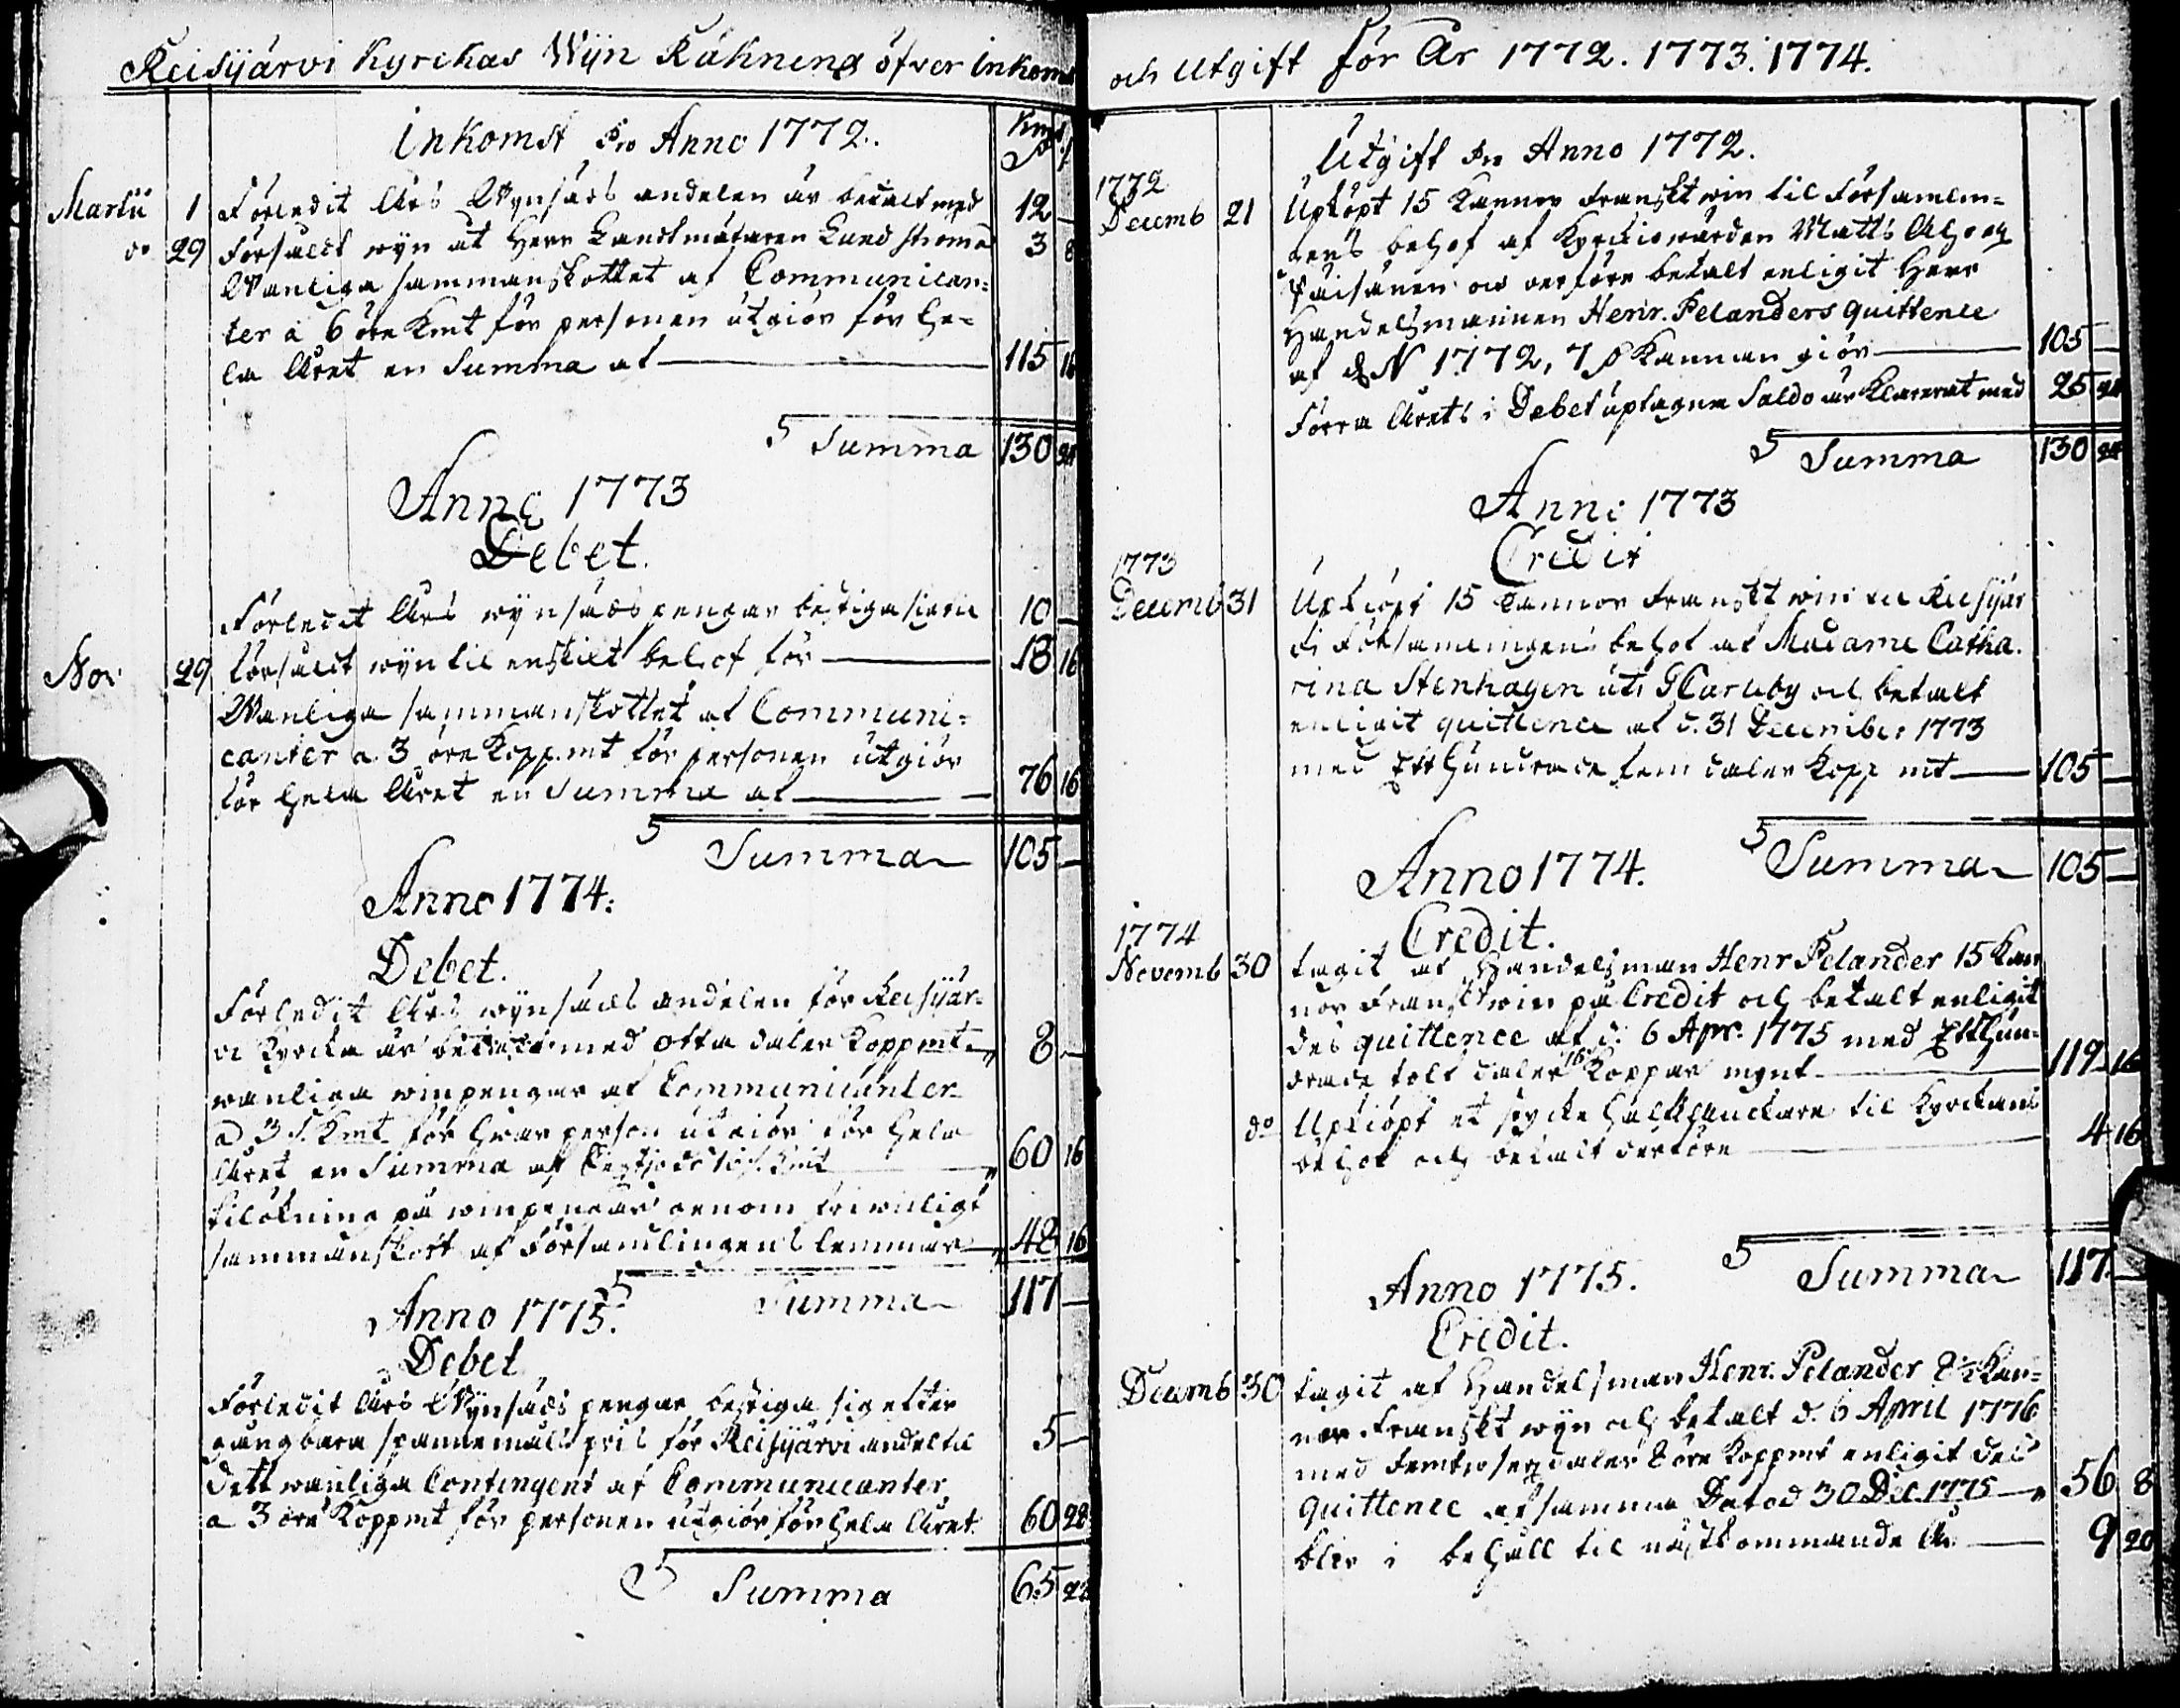 Reisijärvi Kyrckas Wijn Räkning öfver inkomst
inkomst pro Anno 1772.
Kmt
Martii 1 Förledit Års Wynsäds andelen är betalt med 12 —
do 29 Försåldt wyn åt Herr Landtmätaren Lundström 3 8
Wanliga sammanskottet af Communican=
ter à 6 öre Kmt för personen utgiör för he=
la Året en Summa af 115 16
Summa 130 24
Anno 1773
Debet.
Förledit Års wynsäds pengar bestiga sig til 10 —
Nov 29 försåldt wyn til enskilt behof för 18 16
Wanliga sammanskottet af Communi=
canter a 3 öre Kopp.mt för personen utgiör
för hela Året en Summa af 76 16
Summa 105 —
Anno 1774.
Debet.
Förledit Års wynsäds andelen för Reisijär=
vi Kyrcka är betalt med otta daler Koppmt 8 —
wanliga winpengar af Communicanter
a 3 S. Kmt för hvar person utgiör för hela
Året en Summa af Kmt 60 16
tilökning på winpengar genom friwilligt
sammanskott af Församlingens lemmar 48 16
Summa 117 —
Anno 1775.
Debet
Förledit Års Wynsäds pengar bestiga sig efter
gångbara spannemåls pris för Reisijärvi andel til 5 —
Dett wanliga Contingent af Communicanter
a 3 öre Koppmt för personen utgiör för hela Året 60 28
Summa 65 28
och Utgift för År 1772. 1773. 1774.
Utgift pro Anno 1772.
1772
Decemb 21 Upköpt 15 Kannor Franskt win til Församlin=
gens behof af Kyrckiowärden Matts
Päisänen och derföre betalt enligit Herr
Handelsmannen Henr. Pelanders quittence
af 1772, 7 Kannan giör 105 —
Förra Årets i Debet uptagne Saldo är Clarerat med 25 24
Summa 130 24
Anno 1773
Credit
1773
Decemb 31 Upköpt 15 Kannor Franskt win til Reisijär
vi Församlingens behof af Madame Catha.
rina Stenhagen uti GCarleby och betalt
enligit quittence af d. 31 December 1773
med Ett Hundrade fem daler Kopp mt 105 —
Summa 105 —
Anno 1774.
Credit.
1774
Novemb 30 tagit af Handelsman Henr Pelander 15 Kan
nor Franskt win på Credit och betalt enligit
des quittence af d. 6 Apr. 1775 med Ett Hun=
drade tolf daler 16 Koppar mynt 112 16
do Upköpt et stycke til Kyrckans
behof och betalt derföre 4 16
Summa 117 —
Anno 1775.
Credit.
Decemb 30 tagit af Handelsman Henr. Pelander Kan=
nor Franskt wyn och betalt d. 6 April 1776
med Femtio sex daler 8 öre Koppmt enligit des
quittence af samma Dato d 30 Dec. 1775 56 8
blir i behåll til nästkommande År 9 20